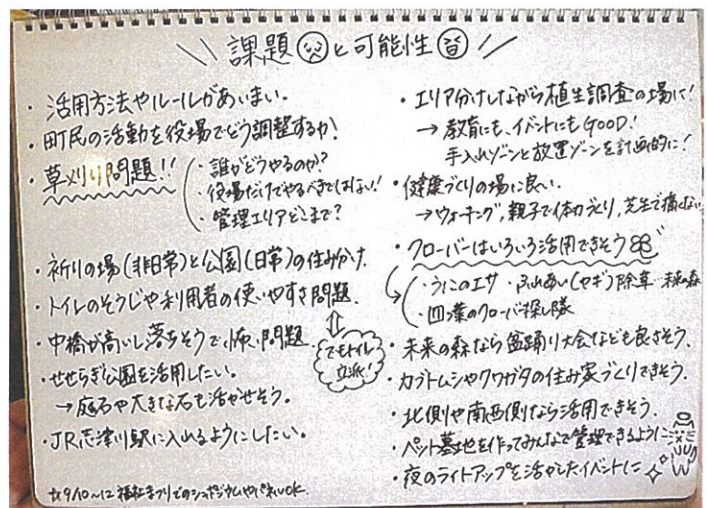 課題と可能性
・活用方法やルールがあいまい。
・町民の活動を役場でどう調整するか!
・草刈り問題!!
・誰がどうやるのか?
役場だけでやるべきではない!
・管理エリアどこまで?
・祈りの場(非日常)と公園(日常)の住み分け。
・トイレのそうじや利用者の使いやすさ問題。
でもトイレ立派!
・中橋が高いし落ちそうで怖い問題。
・せせらぎ公園を活用したい。
→庭石や大きな石も活かせそう。
・JR志津川駅に入れるようにしたい。
9/10~12 福祉まつりでのシンポジウムやパネルOK.
・エリア分けしながら植生調査の場に!
→教育にも、イベントにもGOOD!
手入れゾーンと放置ゾーンを計画的に!
・健康づくりの場に良い。
→ウォーキング,親子で体力づくり,芝生で痛くない
・クローバーはいろいろ活用できそう
・うにのエサ ・ふれあい(ヤギ)除草 未来の森
・四ツ葉のクローバー探し隊
・未来の森なら盆踊り大会なども良さそう。
・カブトムシやクワガタの住み家づくりできそう。
・北側や南西側なら活用できそう。
・ペット墓地を作ってみんなで管理できるように
・夜のライトアップを活かしたイベントに